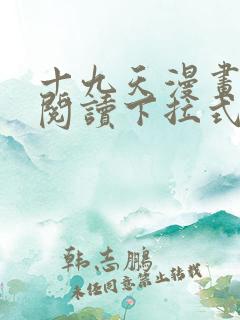 十九天漫畫
閱讀下拉式
韩志鹏
未经同意禁止转载